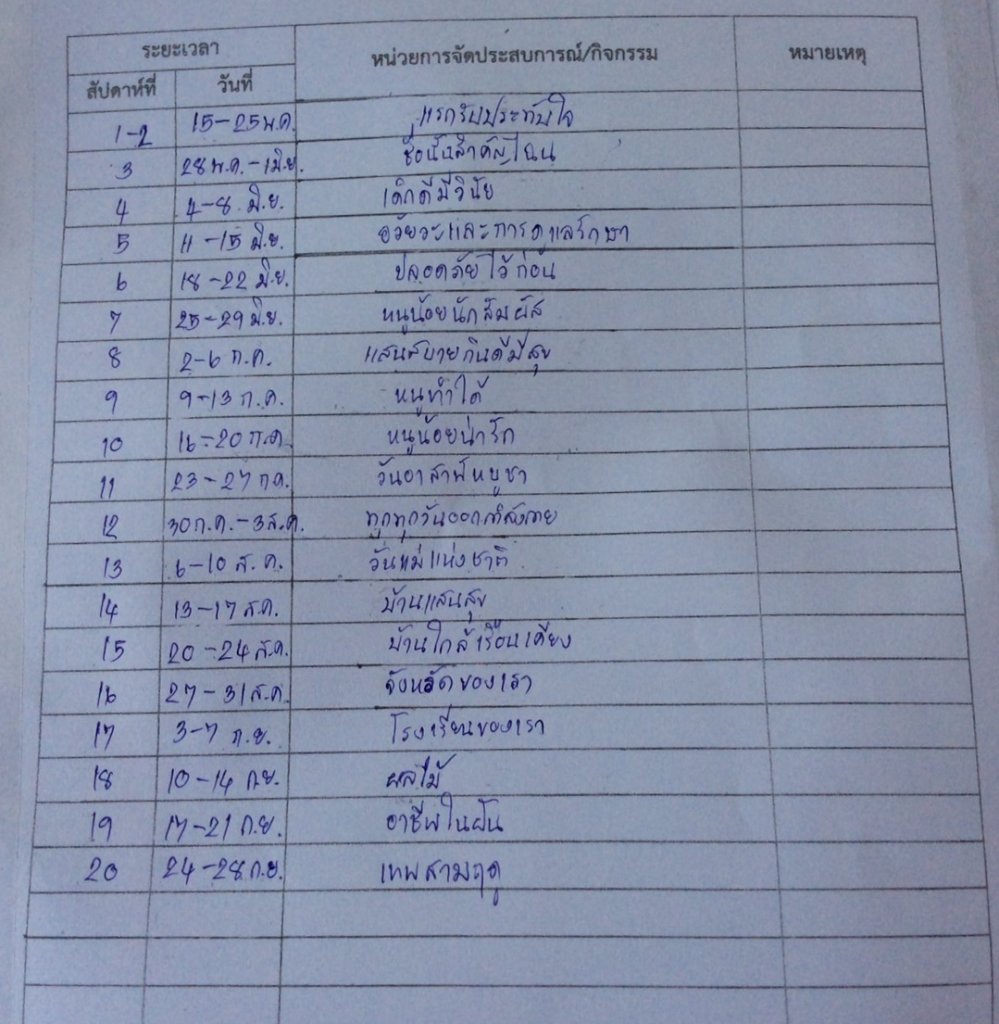 ระยะเวลา หน่วยการจัดประสบการณ์/กิจกรรม หมายเหตุ
สัปดาห์ที่ วันที่
1-2 15-25 พ.ค. แรกรับประทับใจ
3 28 พ.ค.-1 มิ.ย. ชื่อนั้นสำคัญไฉน
4 4-8 มิ.ย. เด็กดีมีวินัย
5 11-15 มิ.ย. อวัยวะและการดูแลรักษา
6 18-22 มิ.ย. ปลอดภัยไว้ก่อน
7 25-29 มิ.ย. หนูน้อยนักสัมผัส
8 2-6 ก.ค. แสนสบายกินดีมีสุข
9 9-13 ก.ค. หนูทำได้
10 16-20 ก.ค. หนูน้อยน่ารัก
11 23-27 ก.ค. วันอาสาฬหบูชา
12 30 ก.ค.-3 ส.ค. ทุกทุกวันออกกำลังกาย
13 6-10 ส.ค. วันแม่แห่งชาติ
14 13-17 ส.ค. บ้านแสนสุข
15 20-24 ส.ค. บ้านใกล้เรือนเคียง
16 27-31 ส.ค. จังหวัดของเรา
17 3-7 ก.ย. โรงเรียนของเรา
18 10-14 ก.ย. ผลไม้
19 17-21 ก.ย. อาชีพในฝัน
20 24-28 ก.ย. เทพสามฤดู